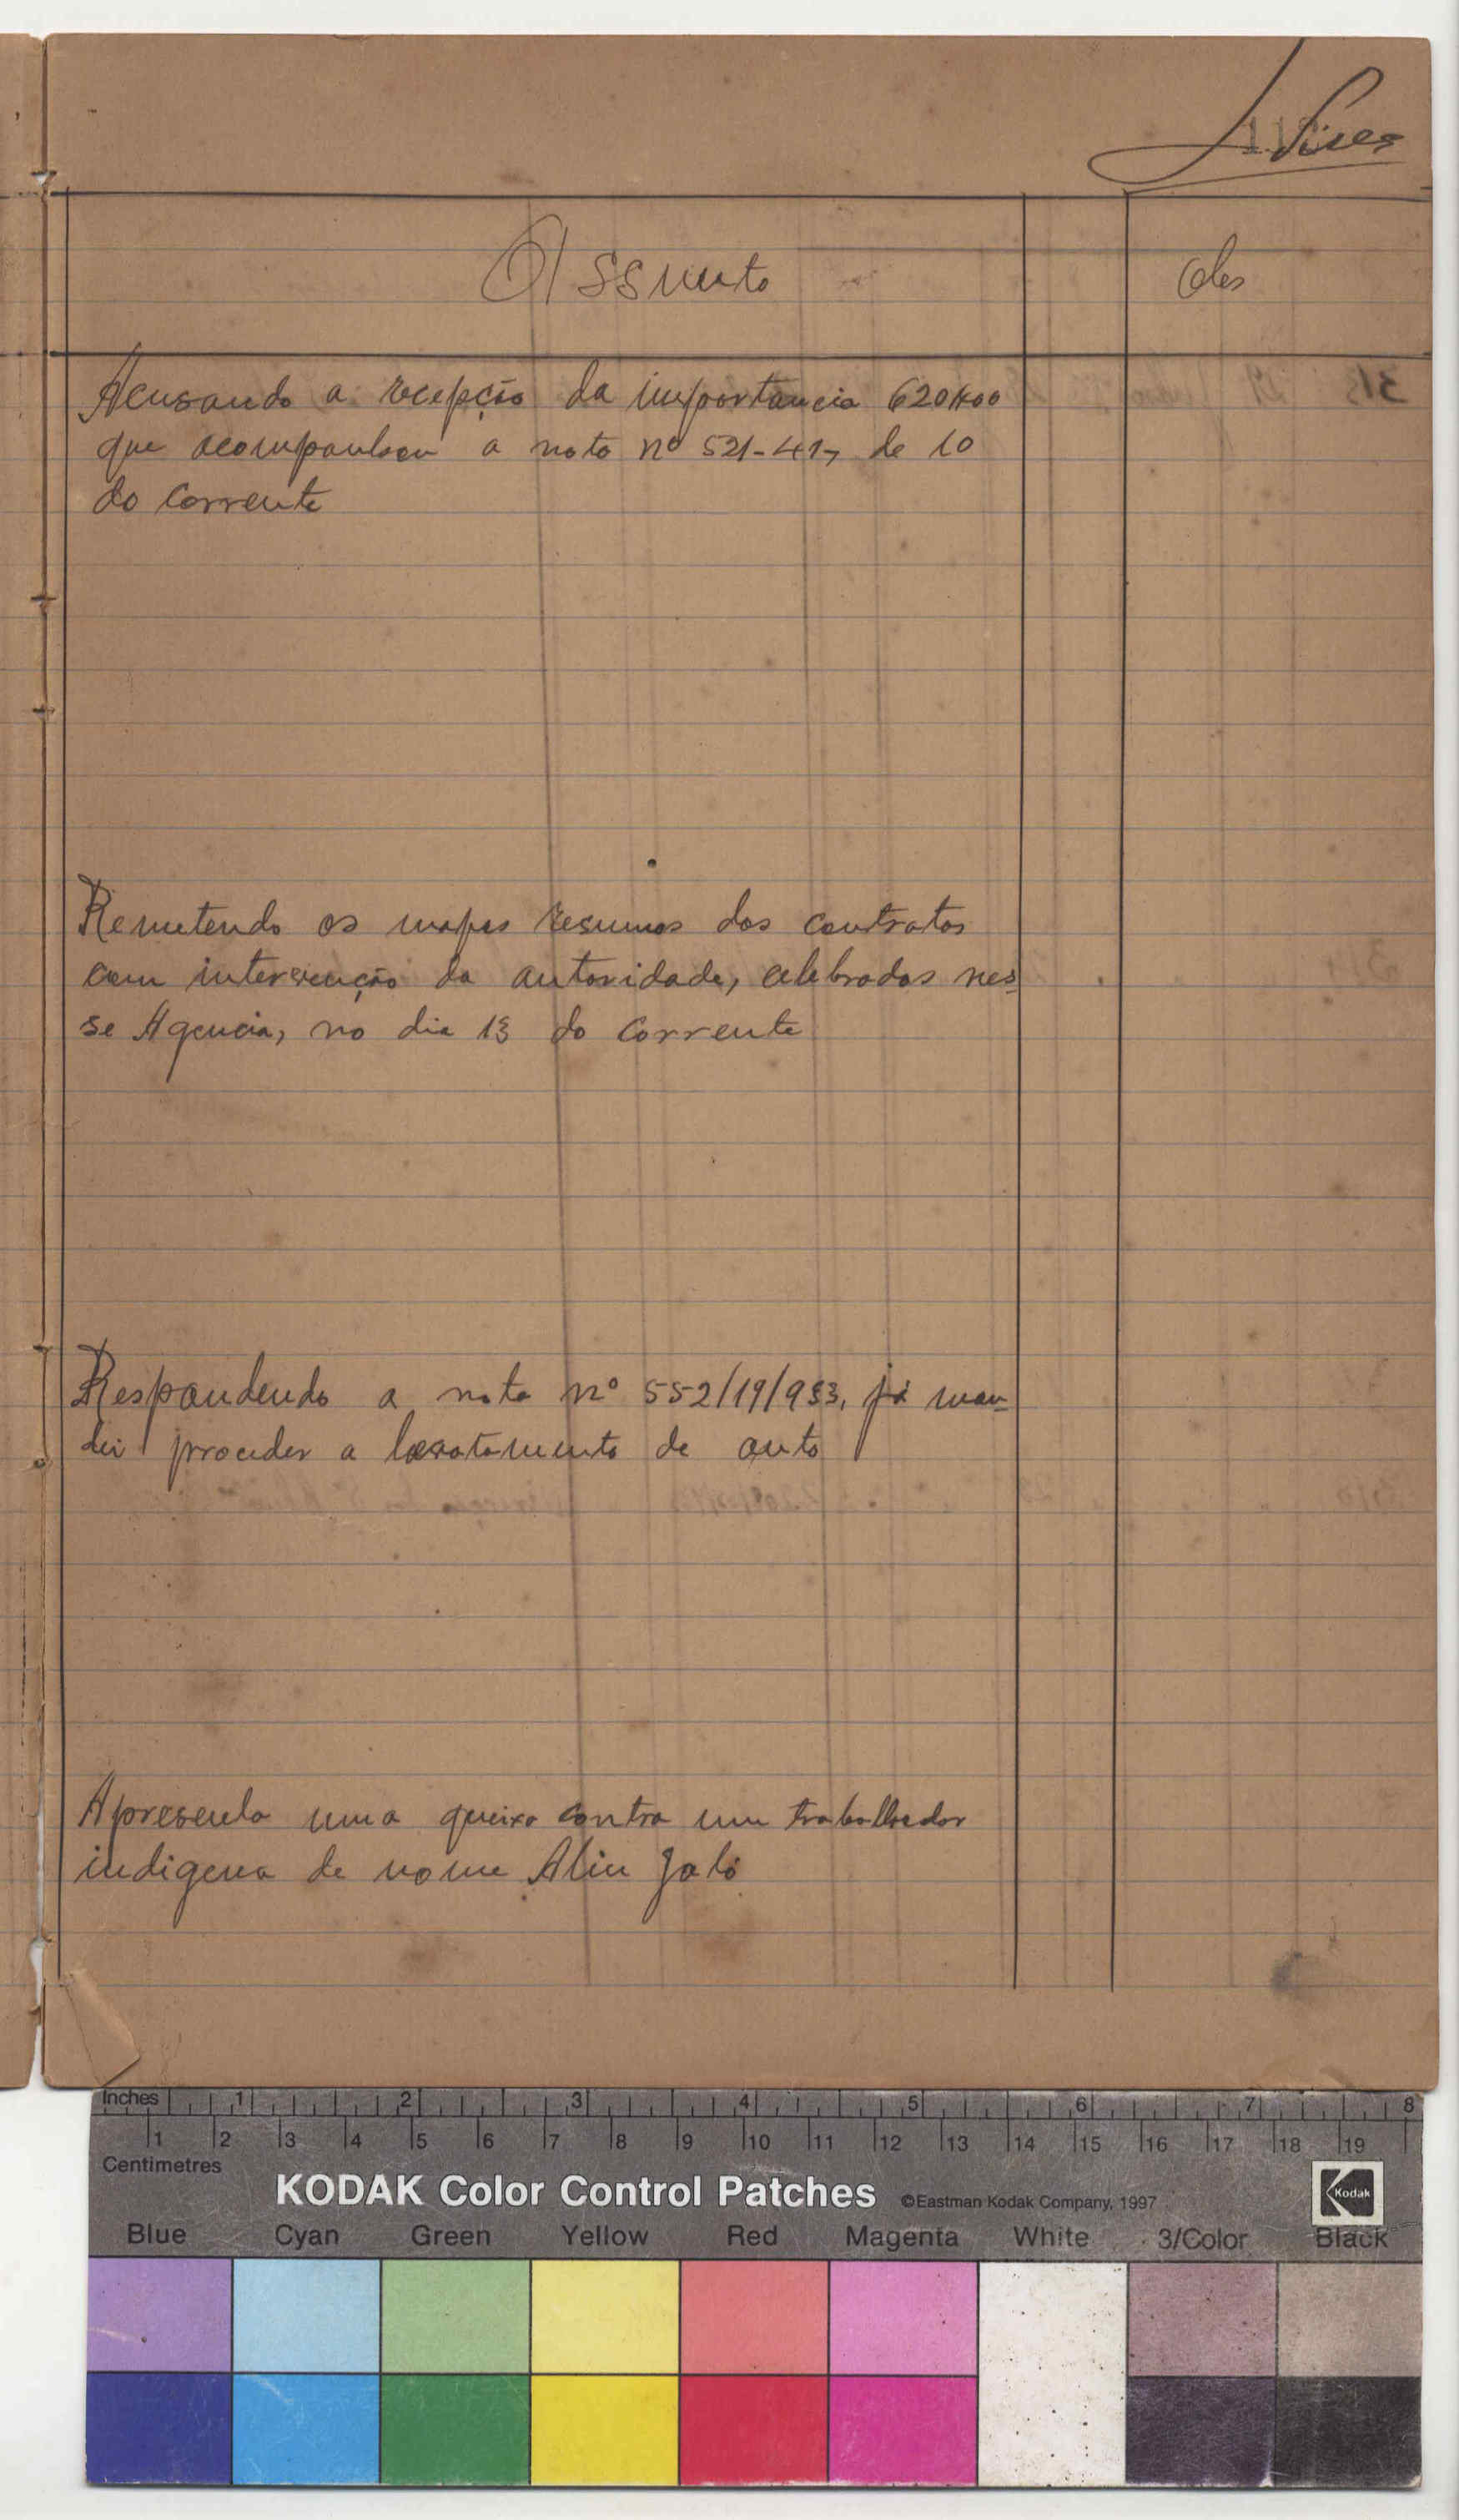 Assunto
Obs
Acusando a recepção da importancia 620$00
que acompanhou a nota nº 521-41, de 10
do corrente
Remetendo os mapas resumos dos contratos
com intervenção da autoridade, celebrados nes-
se Agencia, no dia 13 do corrente
Respondendo a nota nº 552/19/933, já man-
dei proceder a levatamento de auto
Apresenta uma queixa contra um trabalhador
indigena de nome Aliu Jaló
Inches 1 2 3 4 5 6 7 8
1 2 3 4 5 6 7 8 9 10 11 12 13 14 15 16 17 18 19
Centimetres
KODAK Color Control Patches ©Eastman Kodak Company, 1997 Kodak
Blue Cyan Green Yellow Red Magenta White 3/Color Black